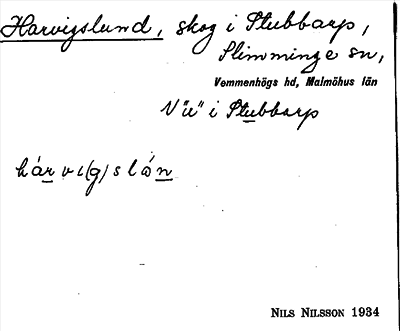 Harvigslund, skog i Stubbarp,
Slimminge sn,
Vemmenhögs hd, Malmöhus län
V "u" i Stubbarp
hárvi(g)slón
NILS NILSSON 1934